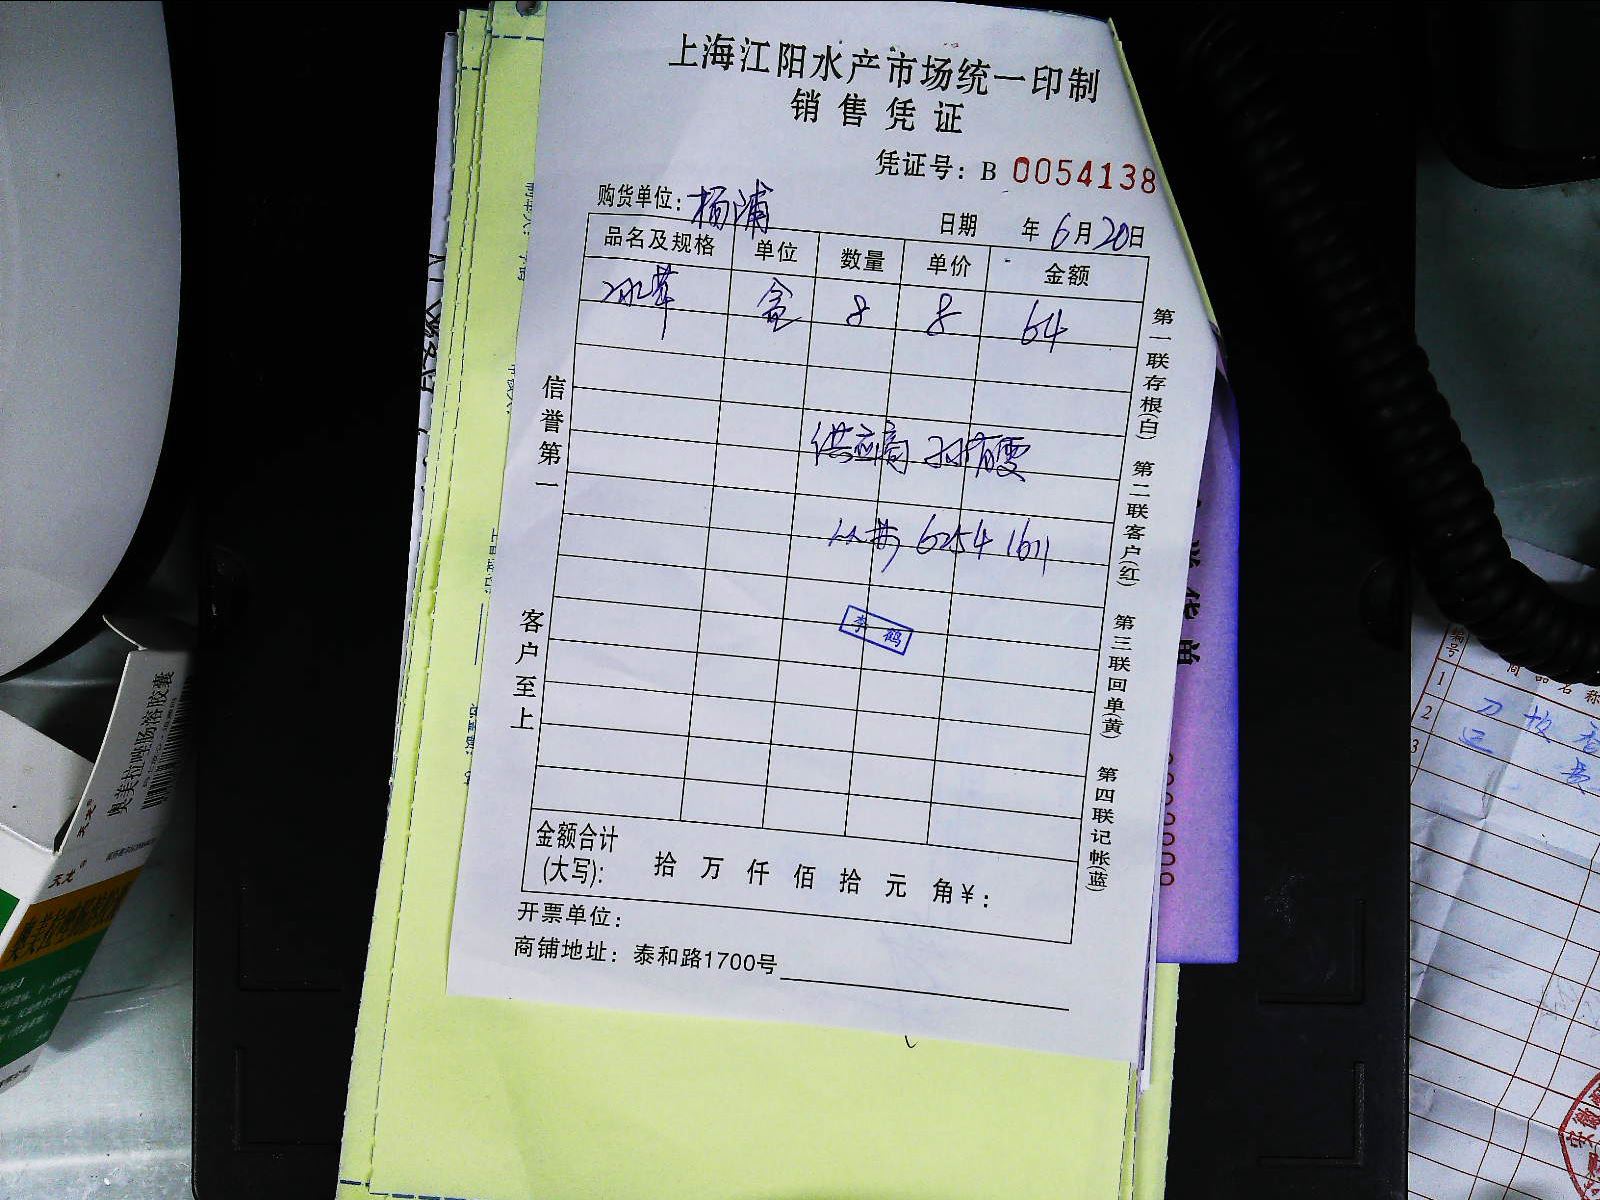 上海江阳水产市场统一印制
销售凭证
凭证号：B 0054138
购货单位：杨浦
日期 年 6月20日
品名及规格 单位 数量 单价 金额
冰草 盒 8 8 64
供应商
6254 1611
李鹤
信誉第一
客户至上
第一联存根(白) 第二联客户(红) 第三联回单(黄) 第四联记帐(蓝)
金额合计
(大写)： 拾 万 仟 佰 拾 元 角￥：
开票单位：
商铺地址：泰和路1700号
奥美拉唑肠溶胶囊
天龙
奥美拉唑肠溶胶囊
编号 商品名称
1
2
3